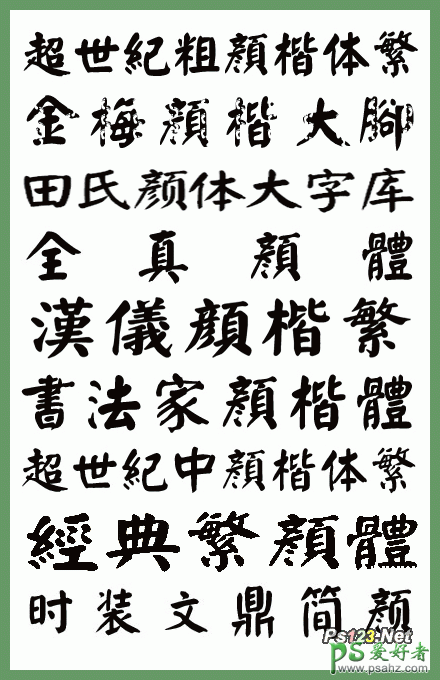 超世紀粗顏楷体繁
金梅顏楷大腳
田氏颜体大字库
全真顏體
漢儀顏楷繁
書法家顏楷體
超世紀中顏楷体繁
經典繁顏體
时装文鼎简颜
Ps123.Net
PS爱好者
www.psahz.com